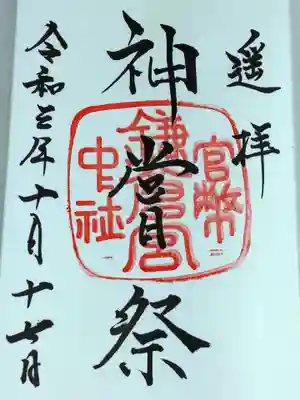 遥拝
神嘗祭
官幣
鎌倉宮
中社
令和三年十月十七日